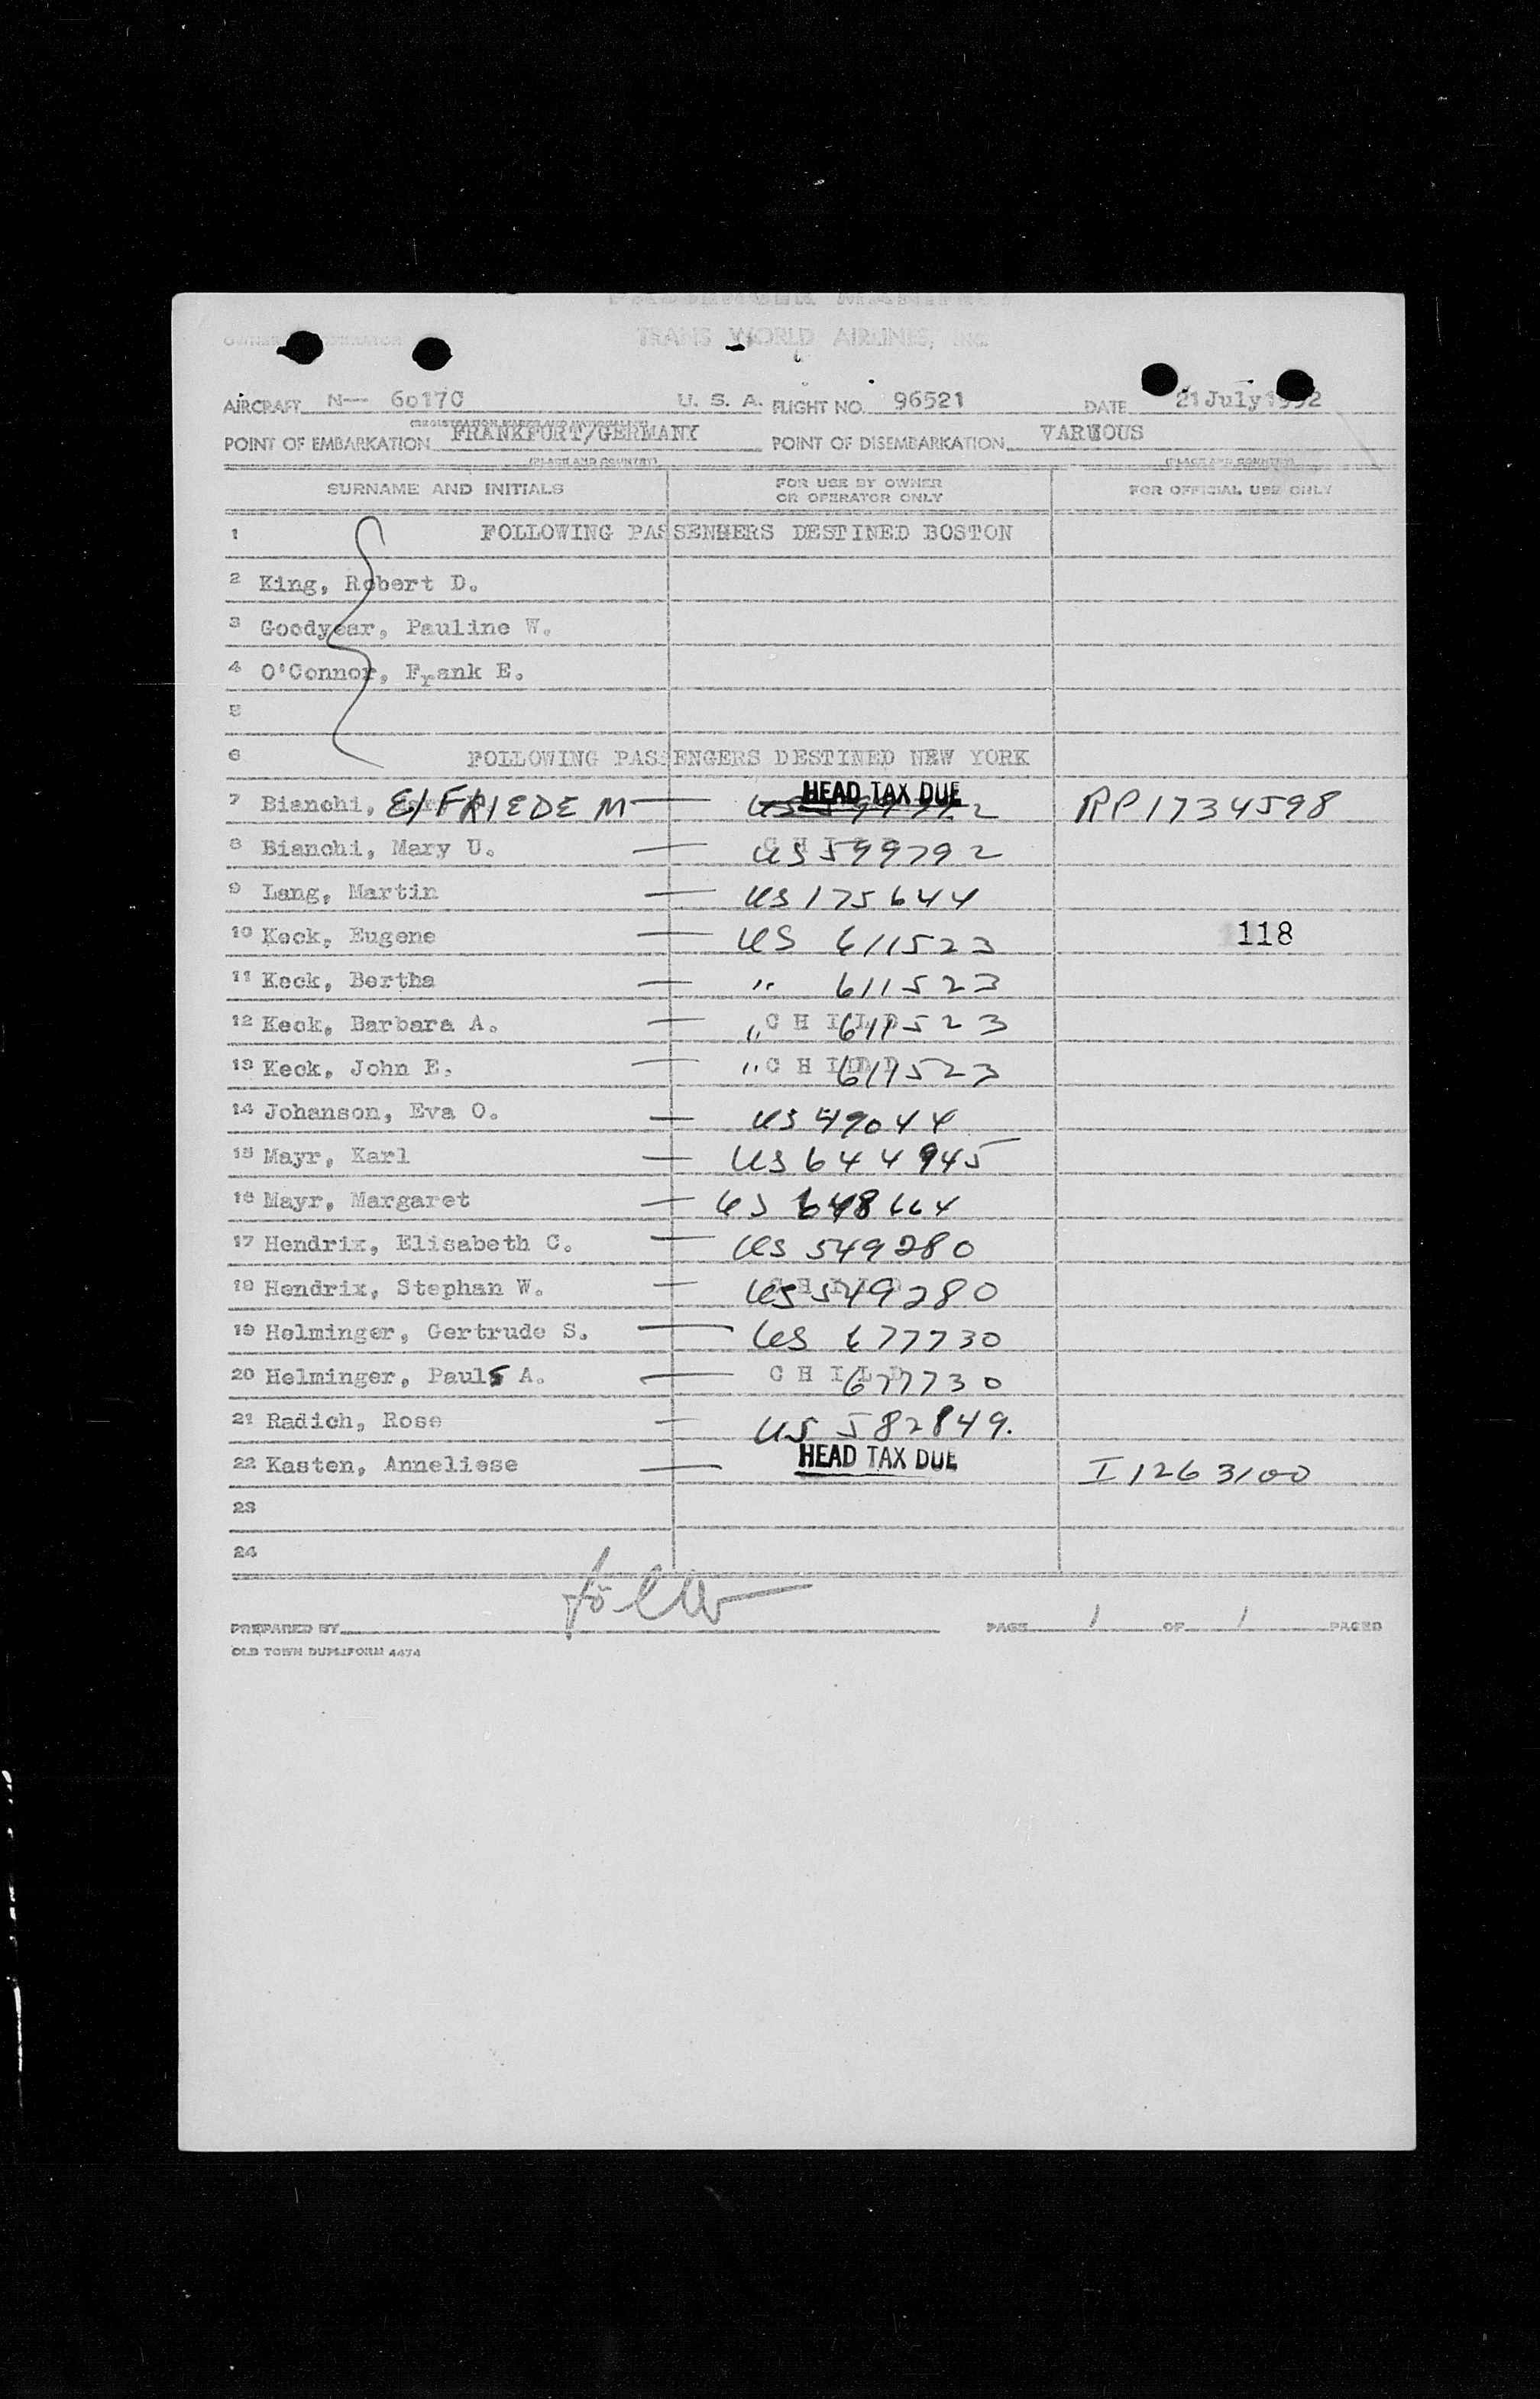 PASSENGER MANIFEST
TRANS WORLD AIRLINES, INC.
AIRCRAFT N-- 6017C U. S. A. FLIGHT NO. 96521 DATE 21 July 1952
POINT OF EMBARKATION FRANKFURT/GERMANY POINT OF DISEMBARKATION VARIOUS
(PLACE AND COUNTRY) (PLACE AND COUNTRY)
SURNAME AND INITIALS FOR USE BY OWNER OR OPERATOR ONLY FOR OFFICIAL USE ONLY
1 FOLLOWING PASSENHERS DESTINED BOSTON
2 King, Robert D.
3 Goodyear, Pauline W.
4 O'Connor, Frank E.
5
6 FOLLOWING PASSENGERS DESTINED NEW YORK
7 Bianchi, ElFRIEDE M — HEAD TAX DUE RP1734598
8 Bianchi, Mary U. — US 599792
9 Lang, Martin — US 175644
10 Keck, Eugene — US 611523 118
11 Keck, Bertha — " 611523
12 Keck, Barbara A. — " CHILD 611523
13 Keck, John E. — " CHILD 611523
14 Johanson, Eva O. — US 49044
15 Mayr, Karl — US 644945
16 Mayr, Margaret — US 648664
17 Hendrix, Elisabeth C. — US 549280
18 Hendrix, Stephan W. — US 549280
19 Helminger, Gertrude S. — US 677730
20 Helminger, Pauls A. — CHILD 677730
21 Radich, Rose — US 582849.
22 Kasten, Anneliese — HEAD TAX DUE I1263100
23
24
PREPARED BY PAGE 1 OF 1 PAGES
OLD TOWN DUPLIFORM 4474